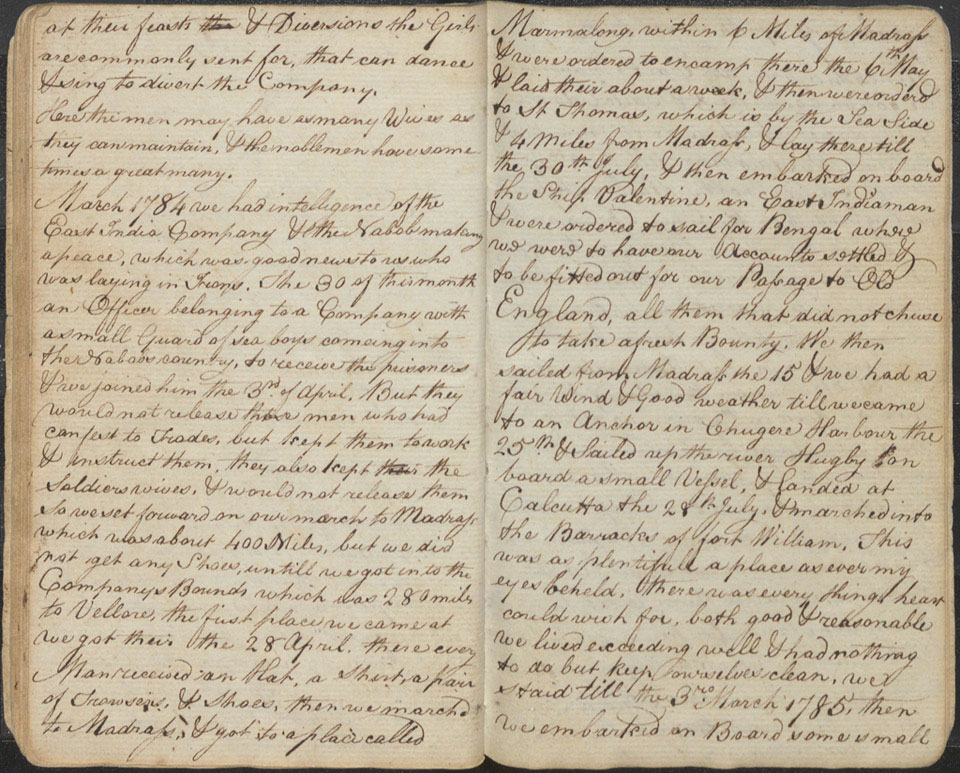 at their feasts the & Diversions the Girls
are commonly sent for, that can dance
& sing to divert the Company.
Here the men may have as many Wives as
they can maintain, & the noblemen have some
times a great many.
March 1784 we had intelligence of the
East India Company & the Nabob making
a peace, which was good news to us who
was laying in Irons. The 30 of this month
an Officer belonging to a Company with
a small Guard of sea boys comeing into
the Nabobs country, to receive the prisoners
& we joined him the 3rd of April, But they
would not release those men who had
confest to Trades, but kept them to work
& instruct them, they also kept their the
Soldiers wives, & would not release them
so we set forward on our march to Madrass
which was about 400 Miles, but we did
not get any Shoes, untill we got in to the
Companys Bounds which was 280 miles
to Vellore, the first place we came at
we got their the 28 April, there every
Man received an Hat, a Shirt, a pair
of Trowsers, & Shoes, then we marched
to Madrass, & got to a place called
Marmalong, within 6 Miles of Madrass
& were ordered to encamp there the 6th May
& laid their about a week, & then were orderd
to St Thomas, which is by the Sea Side
& 4 Miles from Madrass, & lay there till
the 30th July, & then embarked on board
the Ship Valentine, an East Indiaman
& were ordered to sail for Bengal where
we were to have our Accounts settled &
to be fitted out for our Passage to Old
England, all them that did not chuse
to take a fresh Bounty. We then
sailed from Madrass the 15 & we had a
fair Wind & Good weather till we came
to an Anchor in Chugere Harbour the
25th & Sailed up the river Hugby on
board a small Vessel, & landed at
Calcutta the 28th July, & marched into
the Barracks of fort William, This
was as plentifull a place as ever my
eyes beheld, there was every thing heart
could wish for, both good & reasonable
we lived exceeding well & had nothing
to do but keep ourselves clean, we
staid till the 3rd March 1785, then
we embarked on Board some small